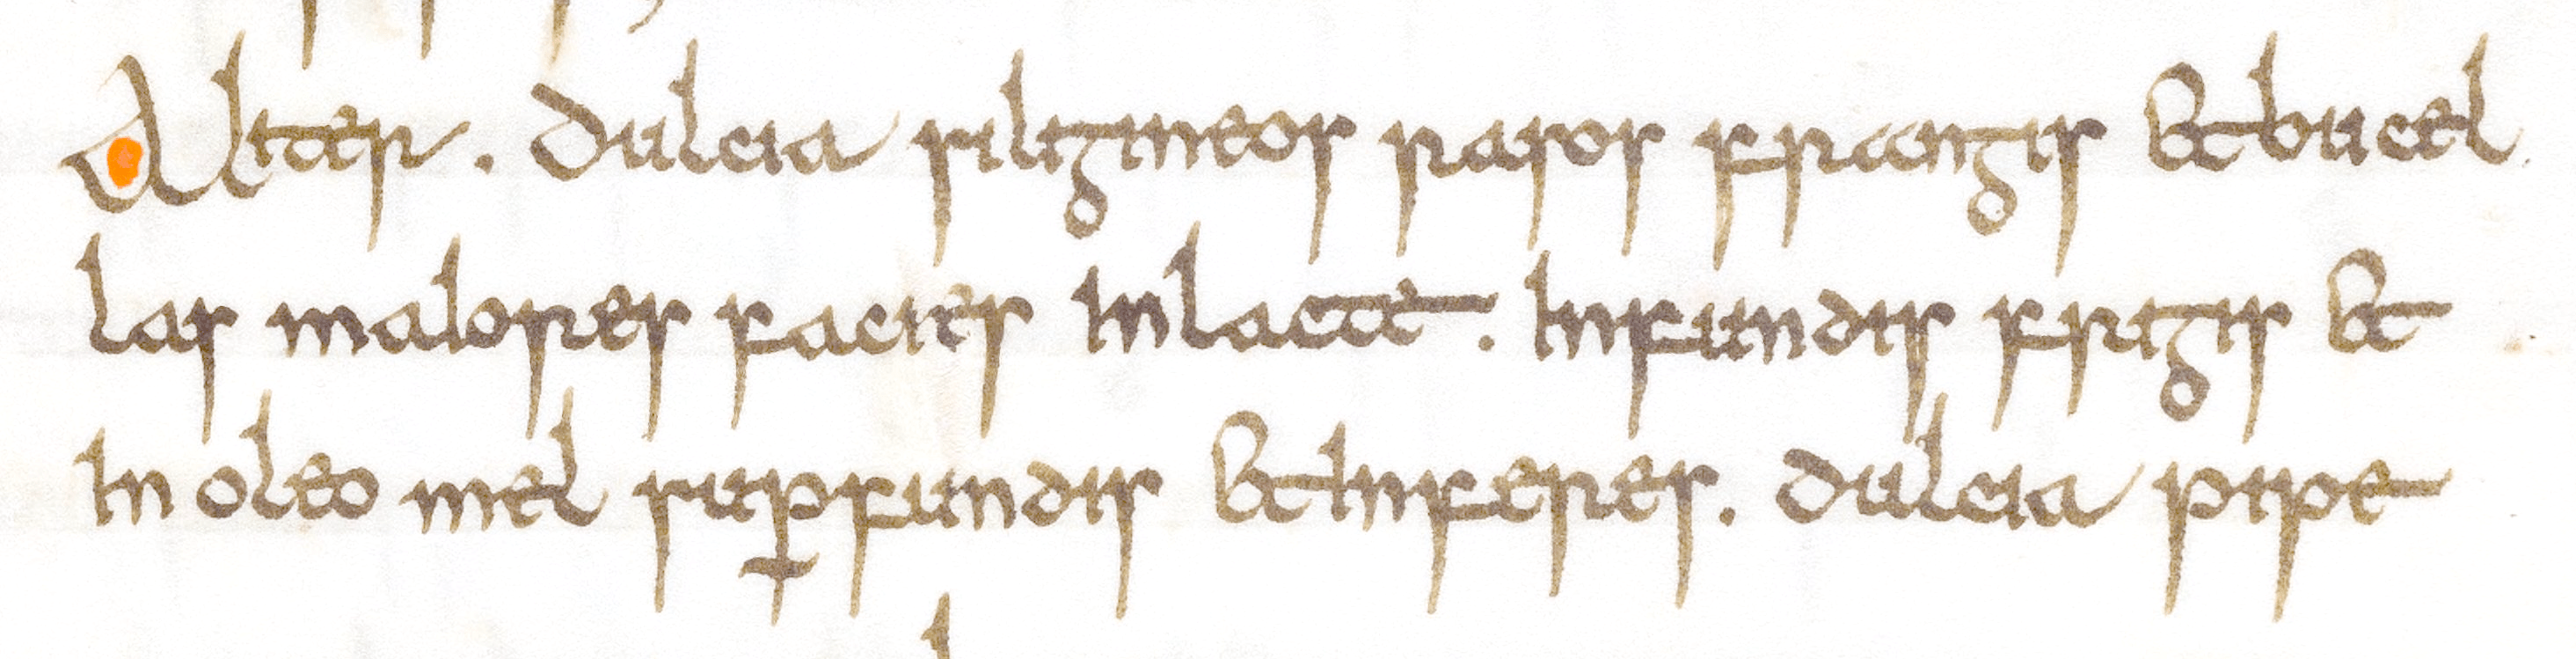 Alter. dulcia siligineos rasos frangis & bucel
las maiores facies In lacte. Infundis frigis &
In oleo mel sup̱fundis & Inferes. dulcia pipe